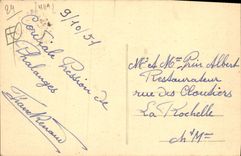 24
9/10/51
Cordiale Pression de
Phalanges
Mr et Mme Prin Albert
Restaurateur
rue des Cloutiers
La Rochelle
Ch' Mme